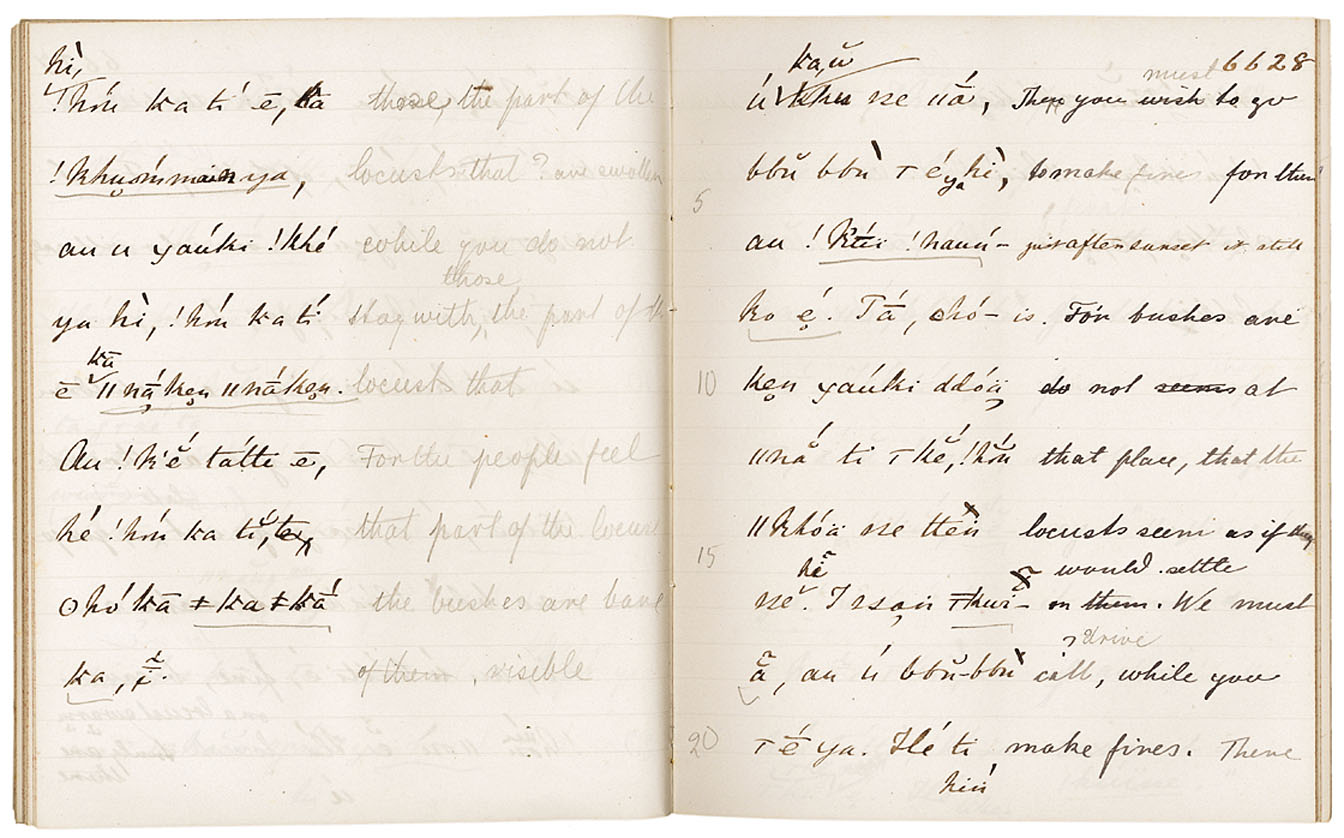 hì,
!hóu ka tí ē, ka those, the part of the
!khwómmainya, locusts that ? are swollen
au u yaúki !khé while you do not
those
ya hì, !hóu ka tí stay with, the part of the
kā
ē ǁnákẹn ǁnákẹn. locust that
Au !k'ĕ́ tátti ē, For the people feel
hé !hóu ka tí, that part of the locust
ʘhó kā ǂka ǂkā́ the bushes are bare
ka, of them, visible
6628
ka, ŭ must
ú se ǁā́, Then you wish to go
bbŭ bbù ya hì, to make fires for them
5
au ! !hauú- just after sunset it still
ko ẹ́. Tā́, ʘhó- is. For bushes are
10
kẹn yaúki ddóä do not seem at
ǁnā́ ti é, !hóŭ that place, that the
ǁkhóä se ttĕn locusts seem as if they
15
hĭ would settle
sĕ. I ssạn on them. We must
drive
ā, au ú bbŭ-bbù call, while you
20
ē ya. Hé ti make fires. There
hiń